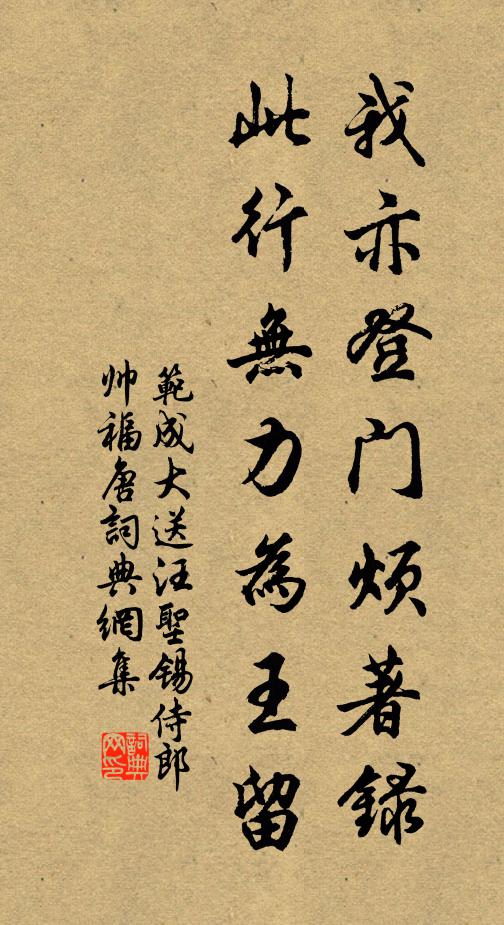 我亦登门煩著録
此行無力為王留
範成大送汪聖錫侍郎
帅福唐詞典網集
詞典网印